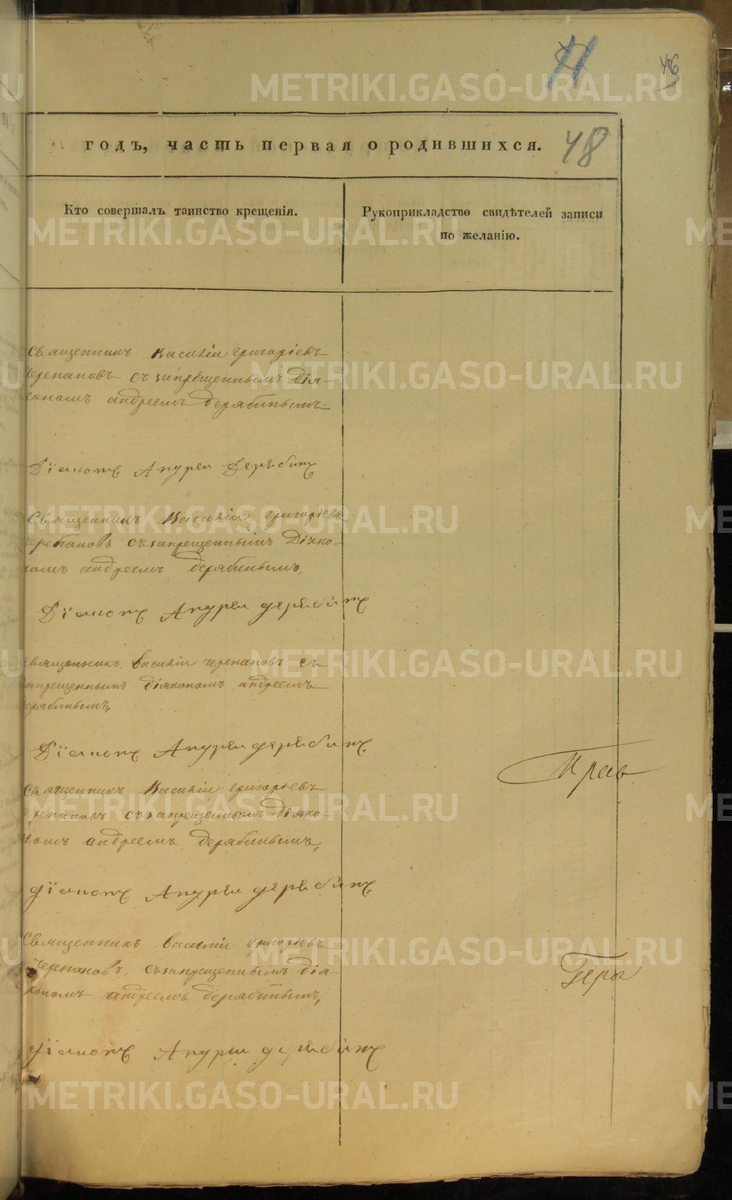 46
48
годъ, часть первая о родившихся.
Кто совершалъ таинство крещенія.
Рукоприкладство свидѣтелей записи
по желанію.
Священникъ Василіи григоріевъ
черепановъ съ запрещеннымъ дія-
кономъ андреемъ дерябинымъ
Діаконъ Андреи Дерябинъ
Священникъ Василіи григоріевъ
черепановъ съ запрещеннымъ діяко-
номъ андреемъ дерябинымъ,
Діаконъ Андреи дерябинъ
священникъ василіи черепановъ съ
запрещеннымъ діякономъ андреемъ
дерябинымъ,
Діаконъ Андреи дерябинъ
священникъ Василіи григоріевъ
черепановъ съ запрещеннымъ діяко-
номъ андреемъ дерябинымъ,
діаконъ Андреи дерябинъ
Священникъ василіи григоріевъ
черпановъ съ запрещеннымъ дія-
кономъ андреемъ дерябинымъ,
діаконъ Андреи дерябинъ
METRIKI.GASO-URAL.RU